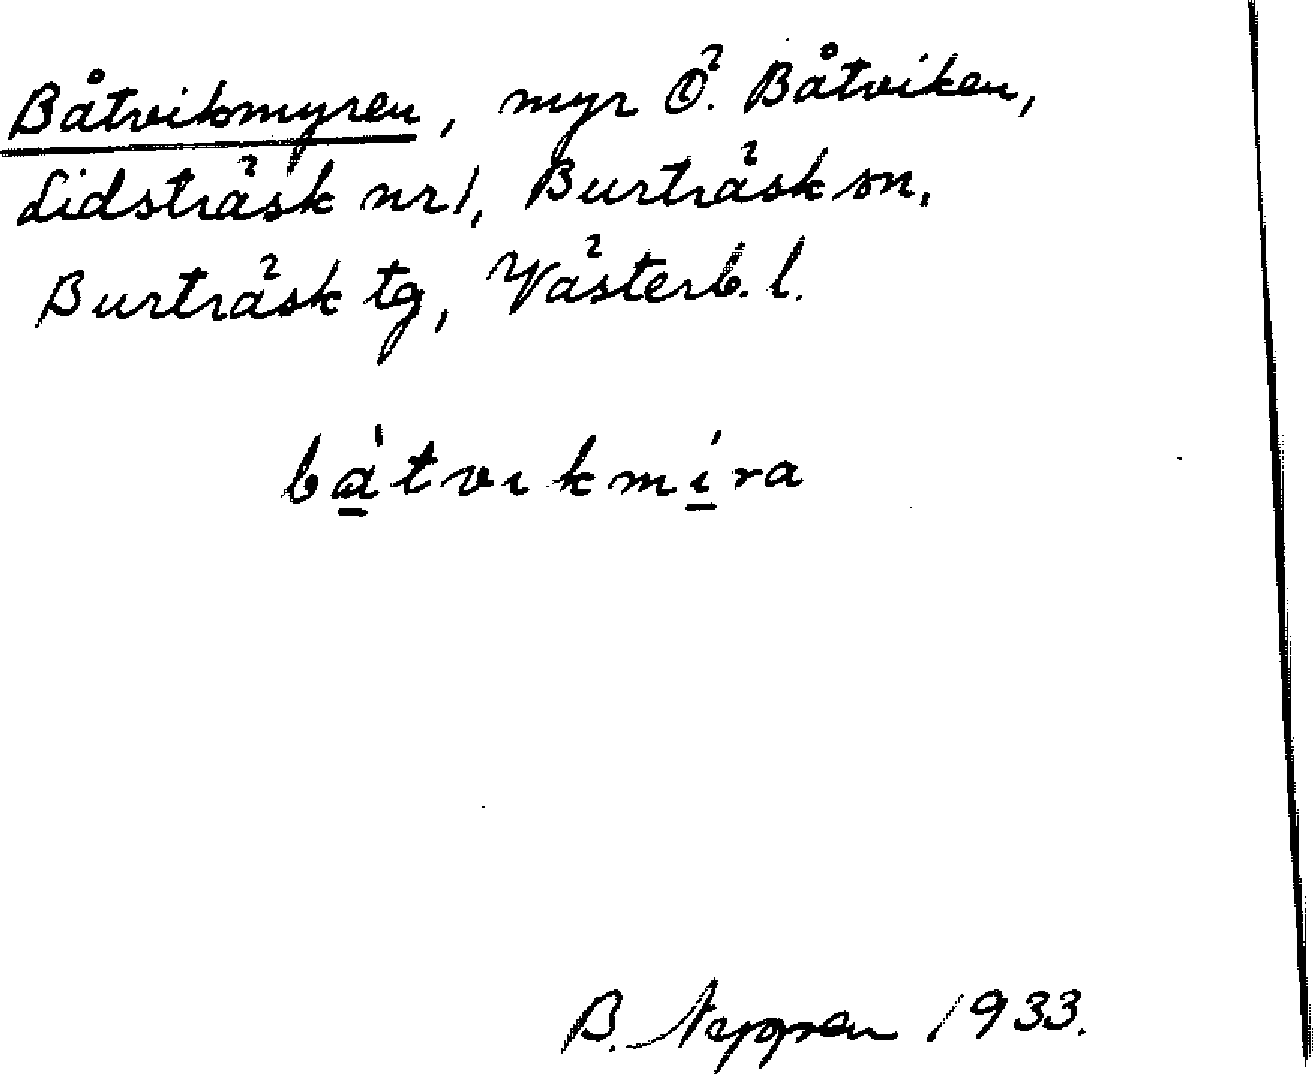 Båtvikmyren, myr Ö. Båtviken,
Lidsträsk nr 1, Burträsk sn,
Burträsk tg, Västerb. l.
bàtvikmíra
B. 1933.